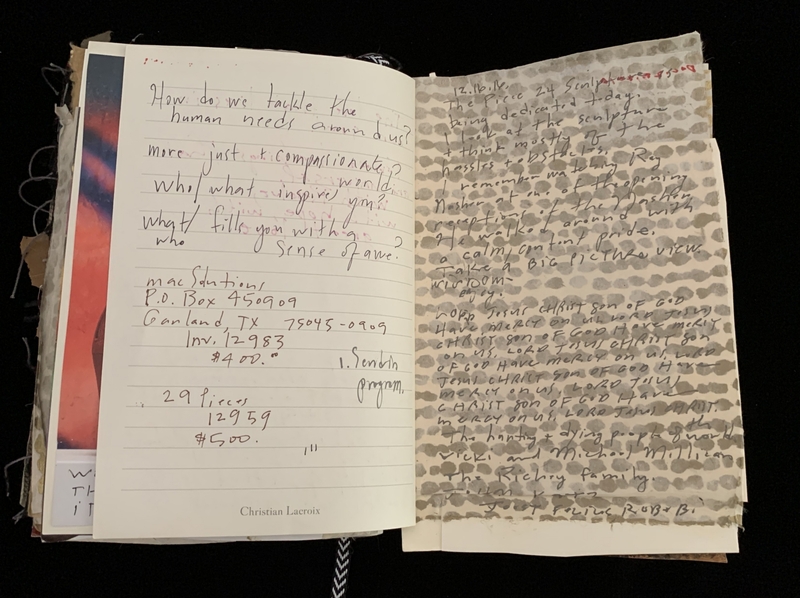 How do we tackle the
human needs around us?
more just & compassionate?
world
who/what inspires you?
what/ fills you with a ?
who
Sense of awe.
mac Solutions
P.O. Box 450909
Garland, TX 75045-0909
Inv. 12983
$400.00
1. Send in
program.
29 Pieces
12959
$500.
Christian Lacroix
W
TH
iT
12.16.11.
The Piece 24 Sculpture
being dedicated today.
I look at the sculpture
+ think mostly of the
hassles + obstacles.
I remember watching Ray
Nasher at one of the opening
receptions of the Nasher.
He walked around with
a calm, content pride.
Take a BIG PICTURE VIEW.
WISDOM-
LORD JESUS CHRIST SON OF GOD
HAVE MERCY ON US, LORD JESUS
CHRIST SON OF GOD HAVE MERCY
ON US, LORD JESUS CHRIST SON
OF GOD HAVE MERCY ON US, LORD
JESUS CHRIST SON OF GOD HAVE
MERCY ON US, LORD JESUS
CHRIST SON OF GOD HAVE
MERCY ON US, LORD JESUS CHRIST.
The + dying people of the world
Vicki and Michael Millican
The Richey family.